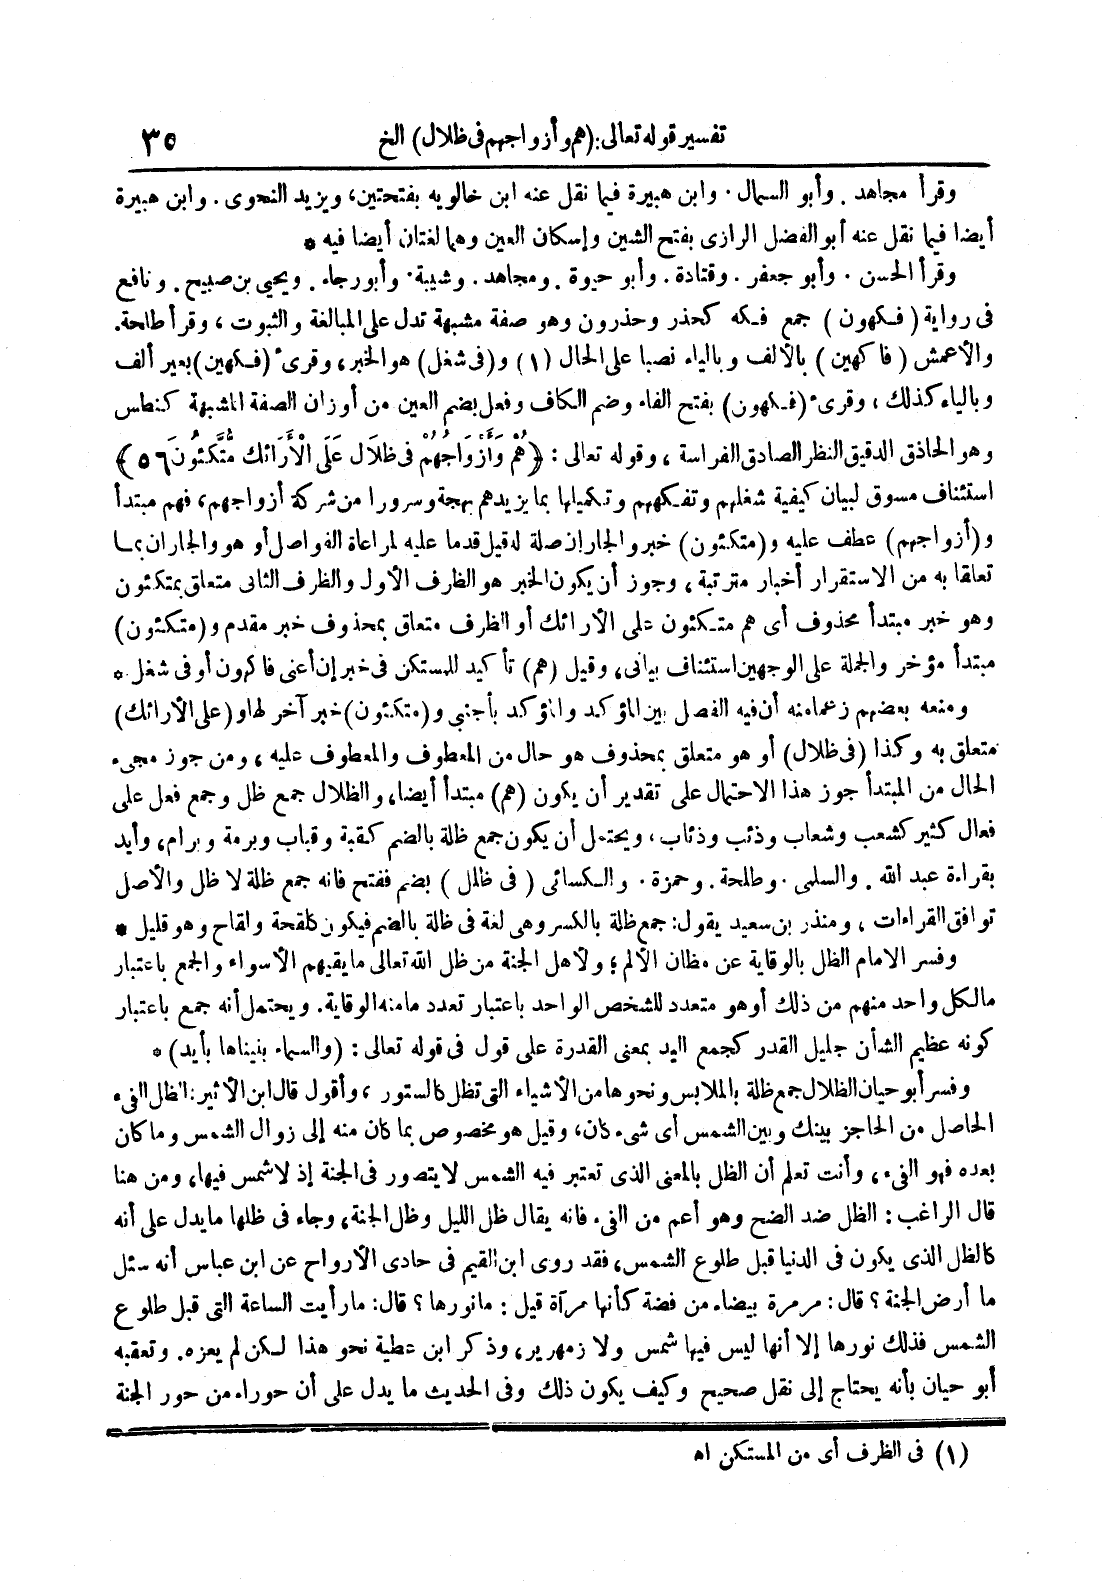 تفسير قوله تعالى: (هم وأزواجهم فى ظلال) الخ ٣٥
وقرأ مجاهد . وأبو السمال . وابن هبيرة فيما نقل عنه ابن خالويه بفتحتين، ويزيد النحوى . وابن هبيرة
أيضا فيما نقل عنه أبو الفضل الرازى بفتح الشين وإسكان الغين وهما لغتان أيضا فيه *
وقرأ الحسن . وأبو جعفر . وقتادة . وأبو حيوة . ومجاهد . وشيبة . وأبو رجاء . ويحيى بن صبيح . ونافع
فى رواية ( فكهون ) جمع فكه كحذر وحذرون وهو صفة مشبهة تدل على المبالغة والثبوت ، وقرأ طلحة.
والأعمش ( فاكهين ) بالألف وبالياء نصبا على الحال (١) و(فى شغل) هو الخبر، وقرىء (فكهين) بغير ألف
وبالياء كذلك ، وقرىء (فكهون) بفتح الفاء وضم الكاف وفعل بضم العين من أوزان الصفة المشبهة كنطس
وهو الحاذق الدقيق النظر الصادق الفراسة ، وقوله تعالى : ﴿هُمْ وَأَزْوَاجُهُمْ فى ظلَال عَلَى الْأَرَائك مُتَّكئُونَ ٥٦﴾
استئناف مسوق لبيان كيفية شغلهم وتفكههم وتكميلها بما يزيدهم بهجة وسرورا من شركة أزواجهم، فهم مبتدأ
و(أزواجهم) عطف عليه و(متكئون) خبر والجاران صلة له قيل قدما عليه لمراعاة الفواصل أو هو والجاران بما
تعلقا به من الاستقرار أخبار مترتبة ، وجوز أن يكون الخبر هو الظرف الأول والظرف الثانى متعلق بمتكئون
وهو خبر مبتدأ محذوف أى هم متكئون على الأرائك أو الظرف متعلق بمحذوف خبر مقدم و(متكئون)
مبتدأ مؤخر والجملة على الوجهين استئناف بيانى، وقيل (هم) تأكيد للمستكن فى خبر إن أعنى فاكهون أو فى شغل *
ومنعه بعضهم زعما منه أن فيه الفصل بين المؤكد والمؤكد بأجنبي و(متكئون) خبر آخر لها و(على الأرائك)
متعلق به وكذا (فى ظلال) أو هو متعلق بمحذوف هو حال من المعطوف والمعطوف عليه ، ومن جوز مجىء
الحال من المبتدأ جوز هذا الاحتمال على تقدير أن يكون (هم) مبتدأ أيضا، والظلال جمع ظل وجمع فعل على
فعال كثير كشعب وشعاب وذئب وذئاب ، ويحتمل أن يكون جمع ظلة بالضم كقبة وقباب وبرمة وبرام، وأيد
بقراءة عبد الله . والسلمى . وطلحة . وحمزة . والكسائى ( فى ظلل ) بضم ففتح فانه جمع ظلة لا ظل والأصل
توافق القراءات ، ومنذر بن سعيد يقول: جمع ظلة بالكسر وهى لغة فى ظلة بالضم فيكون كلقحة ولقاح وهو قليل *
وفسر الامام الظل بالوقاية عن مظان الألم؛ ولأهل الجنة من ظل الله تعالى ما يقيهم الأسواء والجمع باعتبار
مالكل واحد منهم من ذلك أو هو متعدد للشخص الواحد باعتبار تعدد مامنه الوقاية. ويحتمل أنه جمع باعتبار
كونه عظيم الشأن جليل القدر كجمع اليد بمعنى القدرة على قول فى قوله تعالى : (والسماء بنيناها بأيد) *
وفسر أبو حيان الظلال جمع ظلة بالملابس ونحوها من الأشياء التى تظل كالستور ، وأقول قال ابن الأثير: الظل الفىء
الحاصل من الحاجز بينك وبين الشمس أى شىء كان، وقيل هو مخصوص بما كان منه إلى زوال الشمس وما كان
بعده فهو الفىء ، وأنت تعلم أن الظل بالمعنى الذى تعتبر فيه الشمس لا يتصور فى الجنة إذ لا شمس فيها، ومن هنا
قال الراغب : الظل ضد الضح وهو أعم من الفىء فانه يقال ظل الليل وظل الجنة، وجاء فى ظلها مايدل على أنه
كالظل الذى يكون فى الدنيا قبل طلوع الشمس، فقد روى ابن القيم فى حادى الأرواح عن ابن عباس أنه سئل
ما أرض الجنة ؟ قال: مرمرة بيضاء من فضة كأنها مرآة قيل : مانورها ؟ قال: مارأيت الساعة التى قبل طلوع
الشمس فذلك نورها إلا أنها ليس فيها شمس ولا زمهرير، وذكر ابن عطية نحو هذا لكن لم يعزه. وتعقبه
أبو حيان بأنه يحتاج إلى نقل صحيح وكيف يكون ذلك وفى الحديث ما يدل على أن حوراء من حور الجنة
(١) فى الظرف أى من المستكن اه